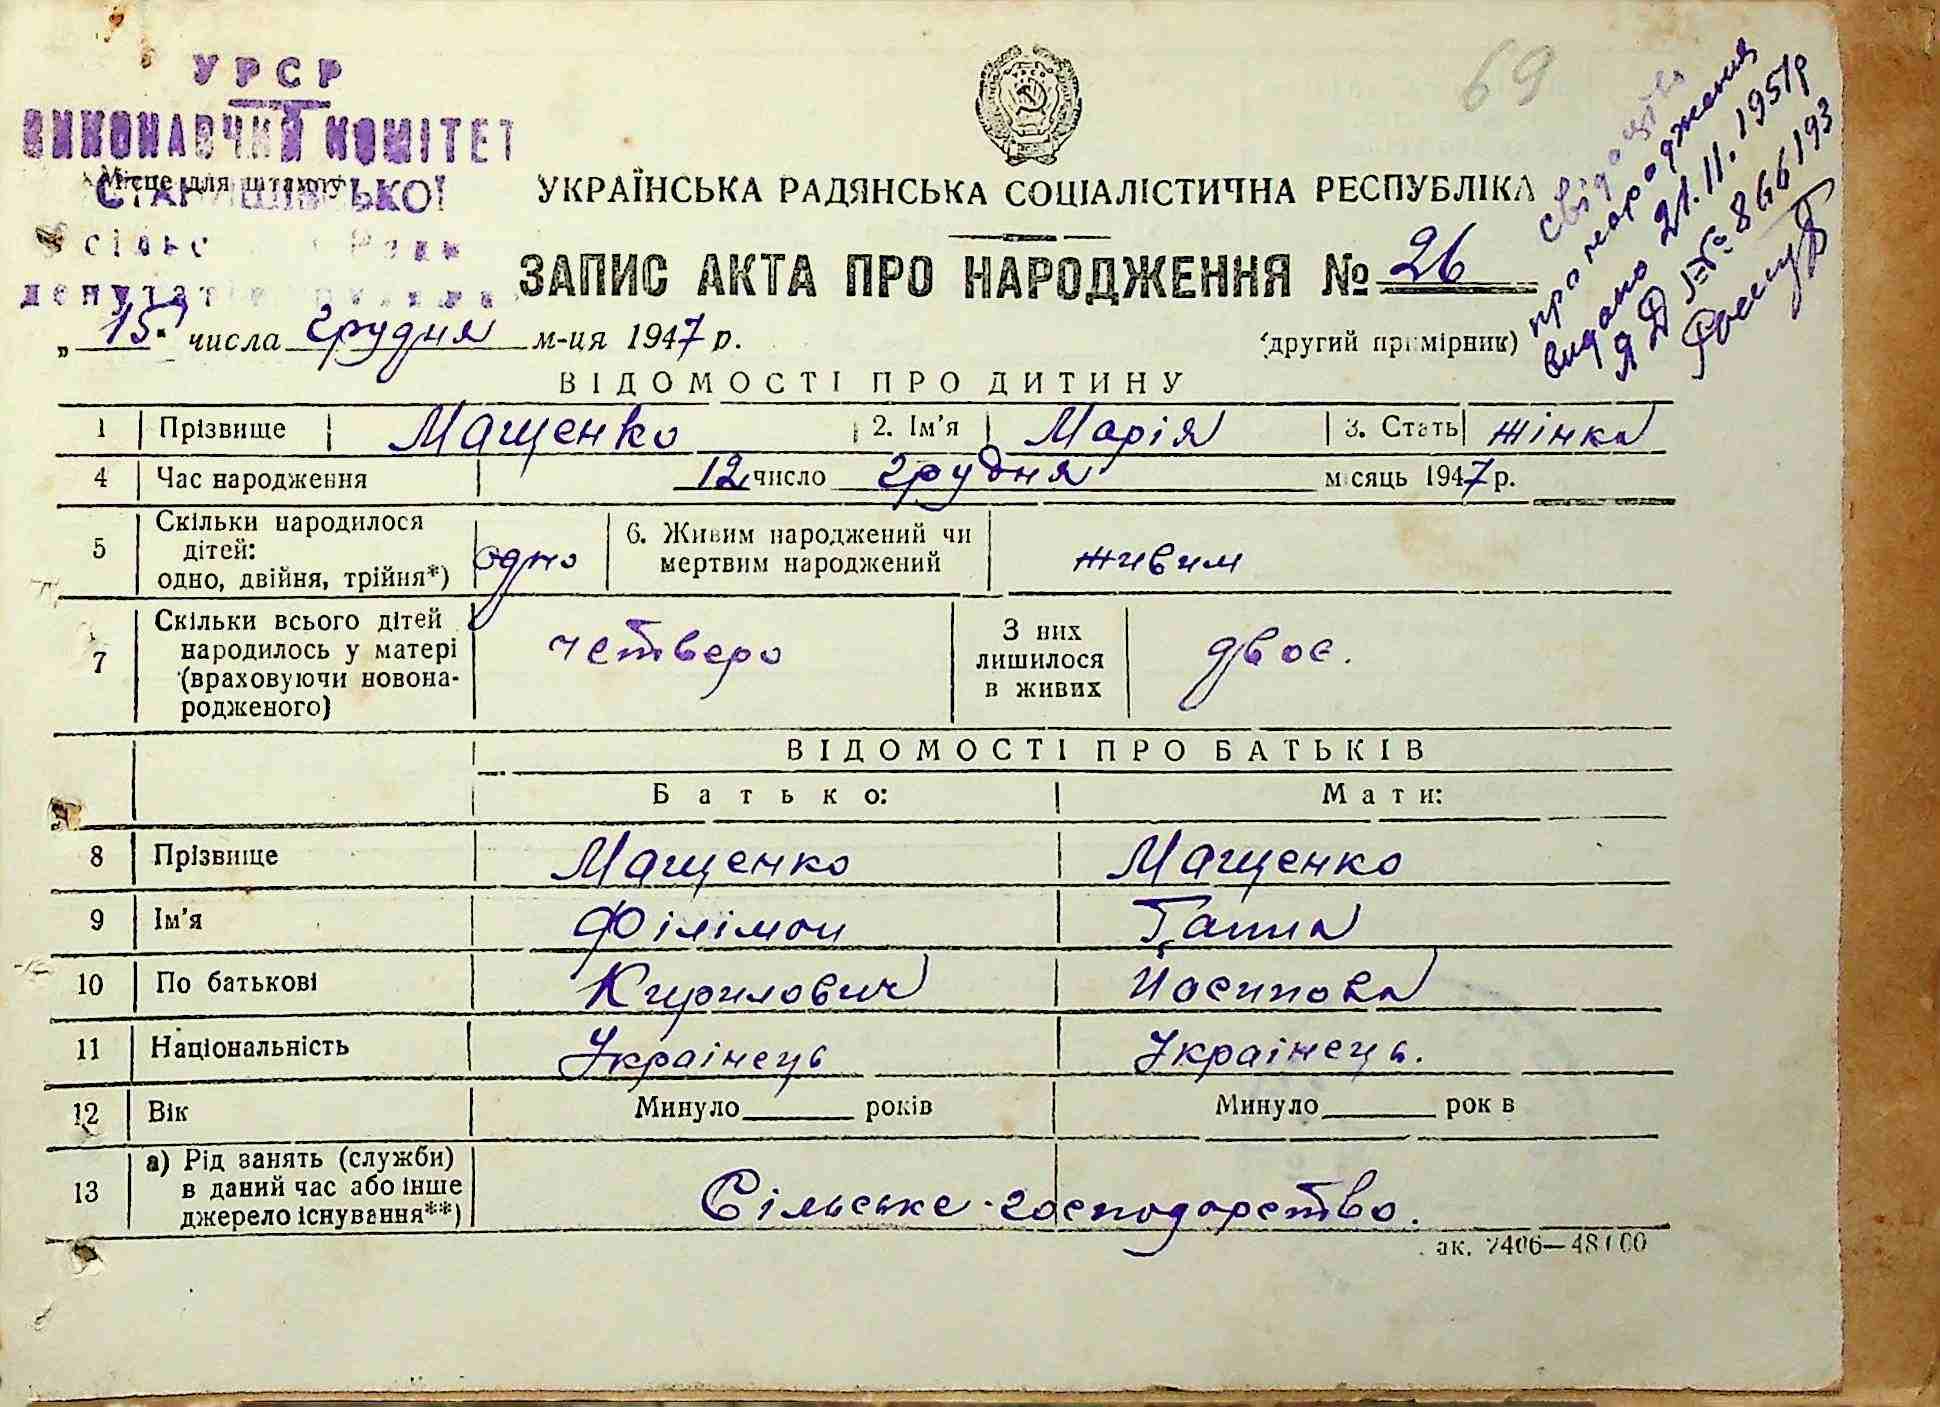 УРСР
ВИКОНАВЧИЙ КОМІТЕТ
Місце для штампу
69
свідоцтво
про народження
видано 21.11.1951р
ЯД № 866193
УКРАЇНСЬКА РАДЯНСЬКА СОЦІАЛІСТИЧНА РЕСПУБЛІКА
ЗАПИС АКТА ПРО НАРОДЖЕННЯ № 26
„15“ числа грудня м-ця 1947 р.
(другий примірник)
ВІДОМОСТІ ПРО ДИТИНУ
1 Прізвище Мащенко 2. Ім'я Марія 3. Стать жінка
4 Час народження 12 число грудня місяць 1947 р.
5 Скільки народилося дітей: одно, двійня, трійня*) одно 6. Живим народжений чи мертвим народжений живим
7 Скільки всього дітей народилось у матері (враховуючи новонародженого) четверо З них лишилося в живих двоє.
ВІДОМОСТІ ПРО БАТЬКІВ
Батько: Мати:
8 Прізвище Мащенко Мащенко
9 Ім'я Філімон Ганна
10 По батькові Кирилович Йосиповна
11 Національність Українець Українець.
12 Вік Минуло років Минуло рок в
13 а) Рід занять (служби) в даний час або інше джерело існування**) Сільське-господарство.